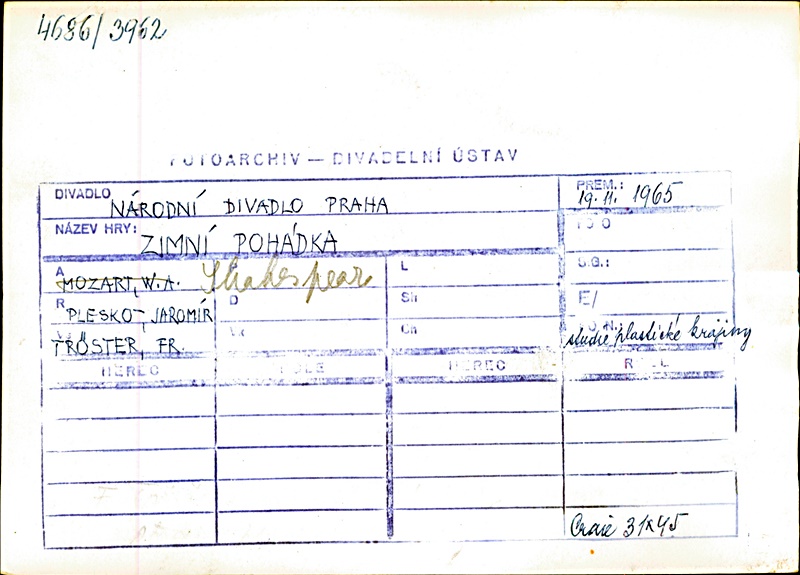 4686/3962
FOTOARCHIV — DIVADELNÍ ÚSTAV
DIVADLO NÁRODNÍ DIVADLO PRAHA
PREM.: 19. 11. 1965
NÁZEV HRY: ZIMNÍ POHÁDKA
A MOZART, W. A. Shakespear
L
S.G.:
R PLESKOT, JAROMÍR
D
Sh
E/
TRÖSTER, FR.
Ch
studie plastické krajiny
HEREC
HEREC
31x45